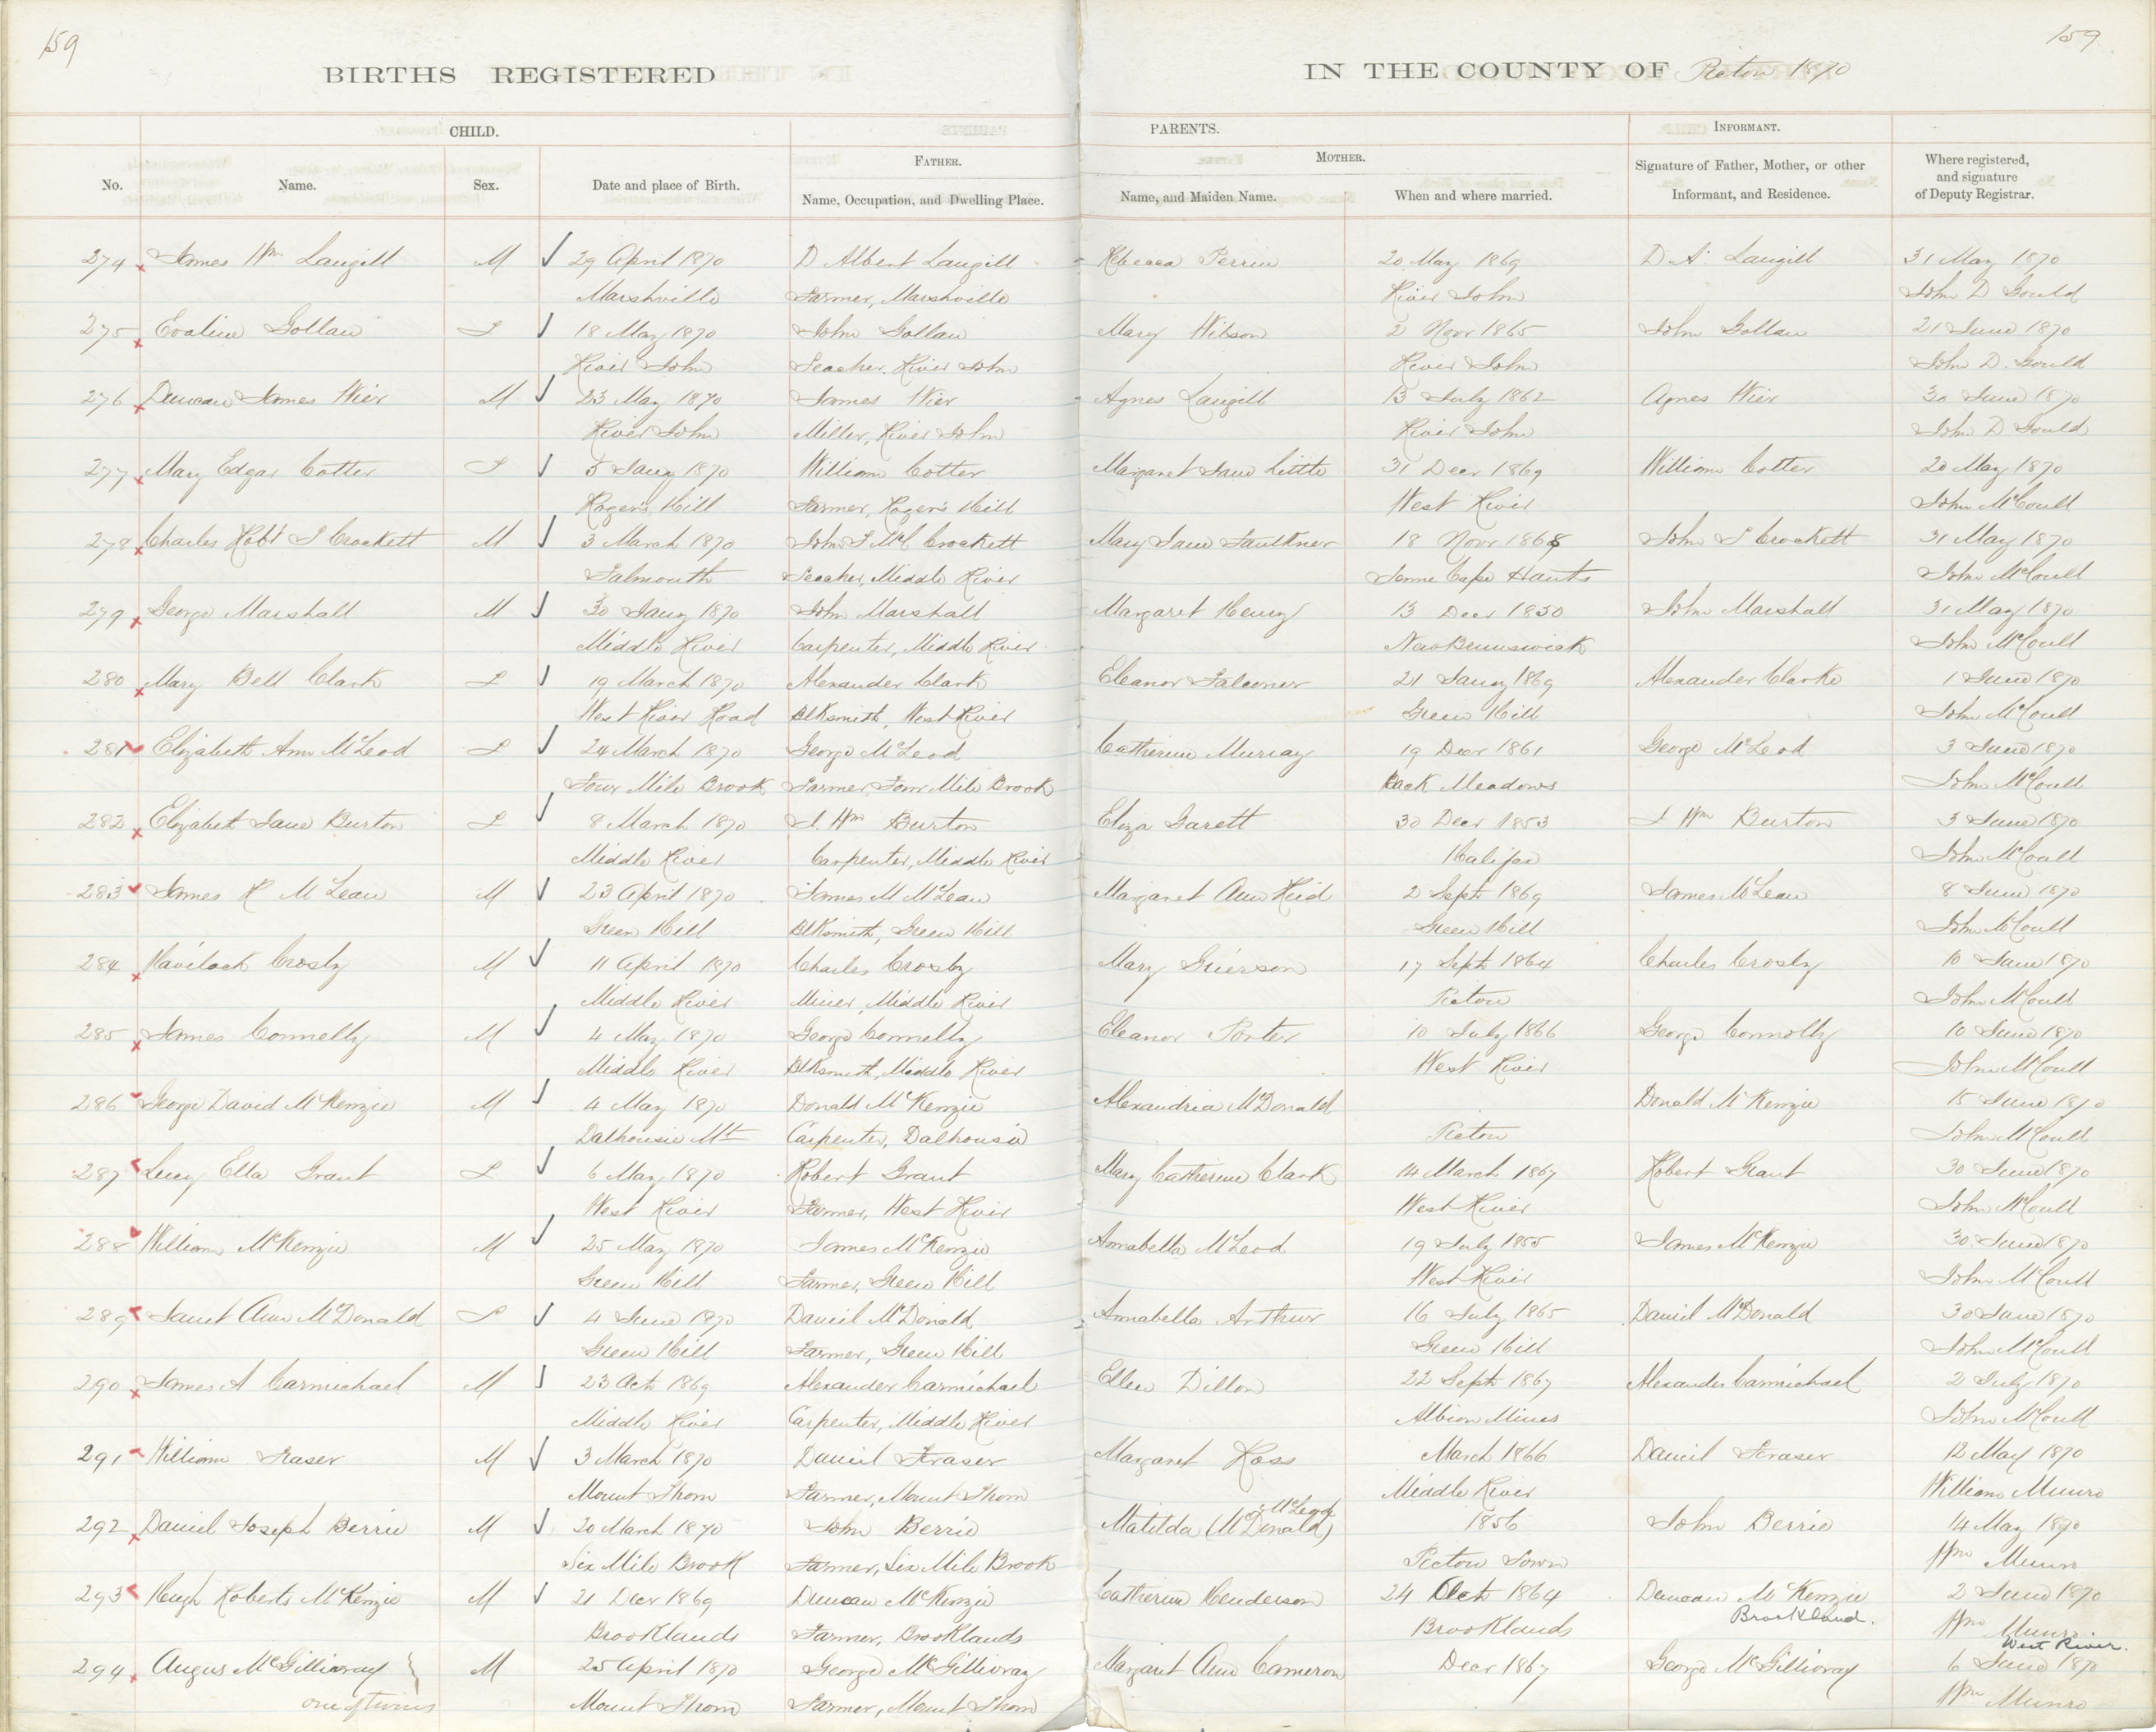 159
159
BIRTHS REGISTERED
IN THE COUNTY OF Pictou 1870
CHILD.
PARENTS.
INFORMANT.
FATHER.
MOTHER.
No.
Name.
Sex.
Date and place of Birth.
Name, Occupation, and Dwelling Place.
Name, and Maiden Name.
When and where married.
Signature of Father, Mother, or other
Informant, and Residence.
Where registered,
and signature
of Deputy Registrar.
274 James Wm Langill M 29 April 1870 D Albert Langill Rebecca Perrin 20 May 1869 D A Langill 31 May 1870
Marshville Farmer, Marshville River John John D Gould
275 Evaline Gollan F 18 May 1870 John Gollan Mary Wilson 2 Novr 1865 John Gollan 21 June 1870
River John Teacher. River John River John John D. Gould
276 Duncan James Wier M 23 May 1870 James Wier Agnes Langill 13 July 1862 Agnes Wier 30 June 1870
River John Miller, River John River John John D Gould
277 Mary Edgar Cotter F 5 Jany 1870 William Cotter Margaret Jane Little 31 Decr 1869 William Cotter 20 May 1870
Roger's Hill Farmer, Roger's Hill West River John McCoull
278 Charles Robt F Crockett M 3 March 1870 John F McC Crockett Mary Jane Faulkner 18 Novr 1868 John F Crockett 31 May 1870
Falmouth Teacher, Middle River Tenne Cape Hants John McCoull
279 George Marshall M 30 Jany 1870 John Marshall Margaret Henry 13 Decr 1850 John Marshall 31 May 1870
Middle River Carpenter, Middle River New Brunswick John McCoull
280 Mary Bell Clark F 19 March 1870 Alexander Clark Eleanor Falconer 21 Jany 1869 Alexander Clarke 1 June 1870
West River Road Blksmith, West River Green Hill John McCoull
281 Elizabeth Ann McLeod F 24 March 1870 George McLeod Catherine Murray 19 Decr 1861 George McLeod 3 June 1870
Four Mile Brook Farmer, Four Mile Brook Back Meadows John McCoull
282 Elizabeth Jane Burton F 8 March 1870 J. Wm Burton Eliza Garett 30 Decr 1853 J Wm Burton 3 June 1870
Middle River Carpenter, Middle River Halifax John McCoull
283 James R McLean M 23 April 1870 James M McLean Margaret Ann Reid 2 Sept 1869 James McLean 8 June 1870
Green Hill Blksmith, Green Hill Green Hill John McCoull
284 Havilock Crosby M 11 April 1870 Charles Crosby Mary Grierson 17 Sept 1864 Charles Crosby 10 June 1870
Middle River Miner, Middle River Pictou John McCoull
285 James Connelly M 4 May 1870 George Connelly Eleanor Porter 10 July 1866 George Connolly 10 June 1870
Middle River Blksmith, Middle River West River John McCoull
286 George David McKenzie M 4 May 1870 Donald McKenzie Alexandria McDonald Donald McKenzie 15 June 1870
Dalhousie Mt Carpenter, Dalhousie Pictou John McCoull
287 Lucy Ella Grant F 6 May 1870 Robert Grant Mary Catherine Clark 14 March 1867 Robert Grant 30 June 1870
West River Farmer, West River West River John McCoull
288 William McKenzie M 25 May 1870 James McKenzie Annabella McLeod 19 July 1855 James McKenzie 30 June 1870
Green Hill Farmer, Green Hill West River John McCoull
289 Janet Ann McDonald F 4 June 1870 Daniel McDonald Annabella Arthur 16 July 1865 Daniel McDonald 30 June 1870
Green Hill Farmer, Green Hill Green Hill John McCoull
290 James A Carmichael M 23 Oct 1869 Alexander Carmichael Ellen Dillon 22 Sept 1867 Alexander Carmichael 2 July 1870
Middle River Carpenter, Middle River Albion Mines John McCoull
291 William Fraser M 3 March 1870 Daniel Fraser Margaret Ross March 1866 Daniel Fraser 12 May 1870
Mount Thom Farmer, Mount Thom Middle River William Munro
McLeod
292 Daniel Joseph Berrie M 20 March 1870 John Berrie Matilda (McDonald) 1856 John Berrie 14 May 1870
Six Mile Brook Farmer, Six Mile Brook Pictou Town Wm Munro
293 Hugh Roberts McKenzie M 21 Decr 1869 Duncan McKenzie Catherine Henderson 24 Oct 1864 Duncan McKenzie 2 June 1870
Brooklands Farmer, Brooklands Brooklands Brookland. Wm Munro
West River.
294 Angus McGillivray M 25 April 1870 George McGillivray Margaret Ann Cameron Decr 1867 George McGillivray 6 June 1870
one of twins Mount Thom Farmer, Mount Thom Wm Munro